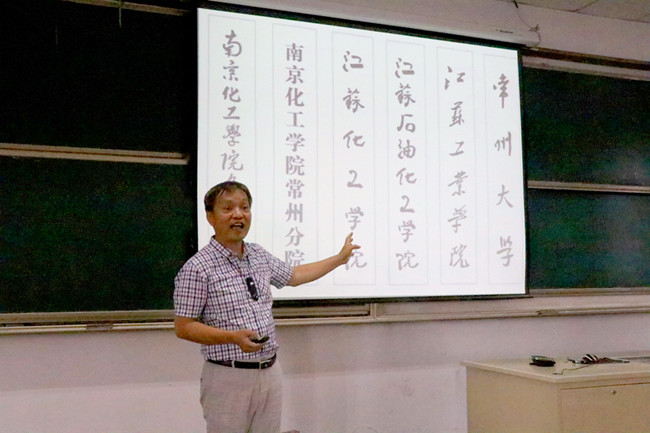 南京化工學院
南京化工学院常州分院
江蘇化工学院
江蘇石油化工学院
江苏工業学院
常州大学